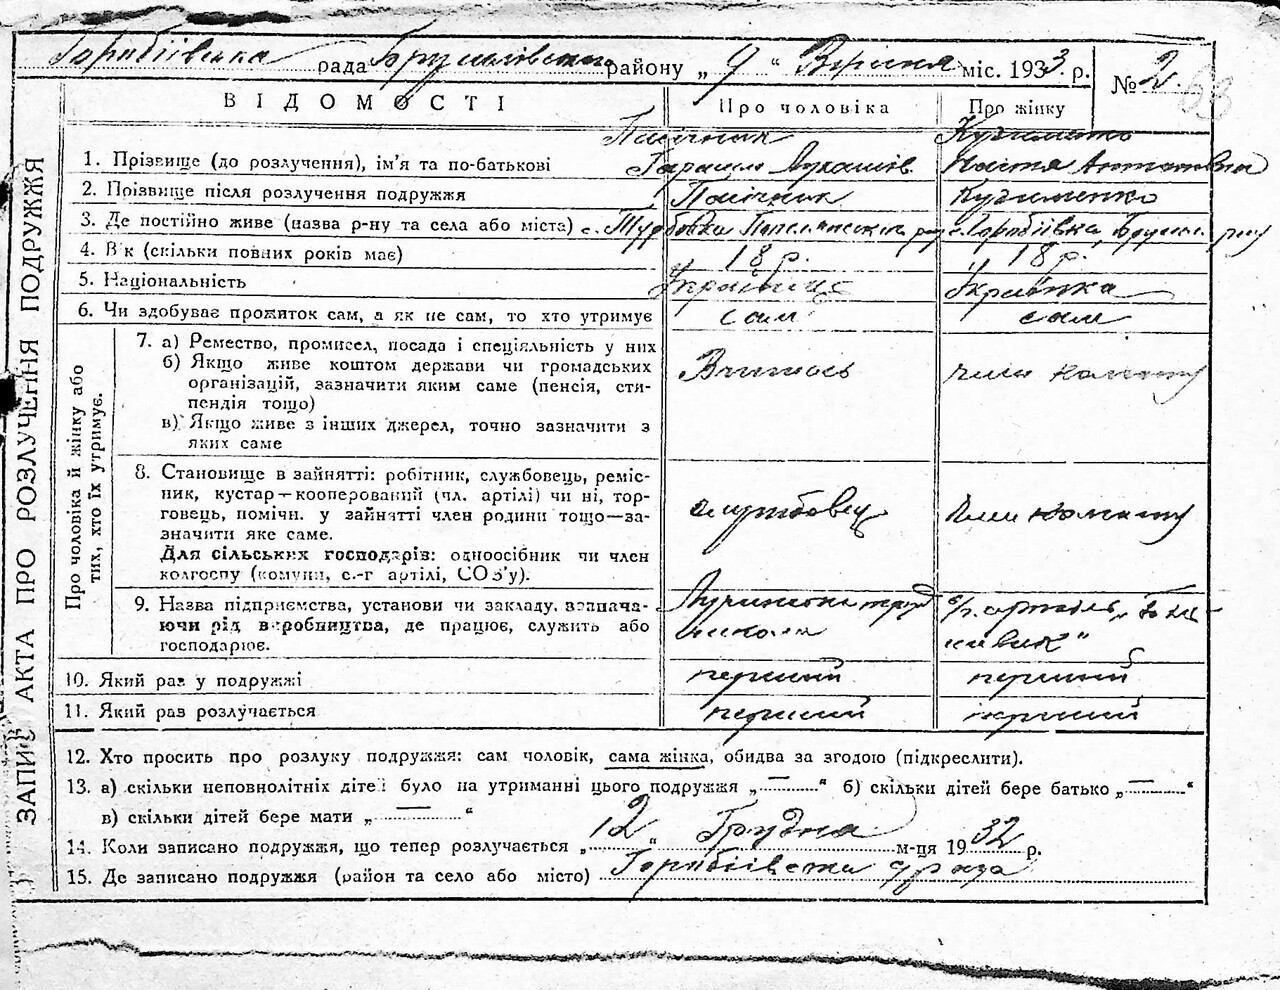 Горобіївська рада Брусилівського району „ 9 “ Вересня міс. 1933 р. № 2 63
ВІДОМОСТІ Про чоловіка Про жінку
Пасічник Кузьменко
1. Прізвище (до розлучення), ім'я та по-батькові Гарасим Лукашів. Настя Антонівна
2. Прізвище після розлучення подружжя Пасічник Кузьменко
3. Де постійно живе (назва р-ну та села або міста) с. Турбовка Попелянського рну с. Горобіївка, Брусил. рну
4. Вік (скільки повних років має) 18 р. 18 р.
5. Національність Українець Українка
6. Чи здобуває прожиток сам, а як не сам, то хто утримує сам сам
Про чоловіка й жінку або тих, хто їх утримує.
7. а) Ремество, промисел, посада і спеціяльність у них
б) Якщо живе коштом держави чи громадських
організацій, зазначити яким саме (пенсія, сти-
пендія тощо)
в) Якщо живе з інших джерел, точно зазначити з
яких саме
Вчитель
член колгоспу
8. Становище в зайнятті: робітник, службовець, реміс-
ник, кустар—кооперований (чл. артілі) чи ні, тор-
говець, помічн. у зайнятті член родини тощо—за-
значити яке саме.
Для сільських господарів: одноосібник чи член
колгоспу (комуни, с.-г артілі, СОЗ'у).
службовець
член колгоспу
9. Назва підприємства, установи чи закладу, зазнача-
ючи рід виробництва, де працює, служить або
господарює.
школа
с/г. артіль „Більшовик“
10. Який раз у подружжі перший перший
11. Який раз розлучається перший перший
12. Хто просить про розлуку подружжя: сам чоловік, сама жінка, обидва за згодою (підкреслити).
13. а) скільки неповнолітніх дітей було на утриманні цього подружжя „ — “ б) скільки дітей бере батько „ — “
в) скільки дітей бере мати „ — “
14. Коли записано подружжя, що тепер розлучається „ 12 “ Грудня м-ця 1932 р.
15. Де записано подружжя (район та село або місто) Горобіївська с/рада
ЗАПИС АКТА ПРО РОЗЛУЧЕННЯ ПОДРУЖЖЯ